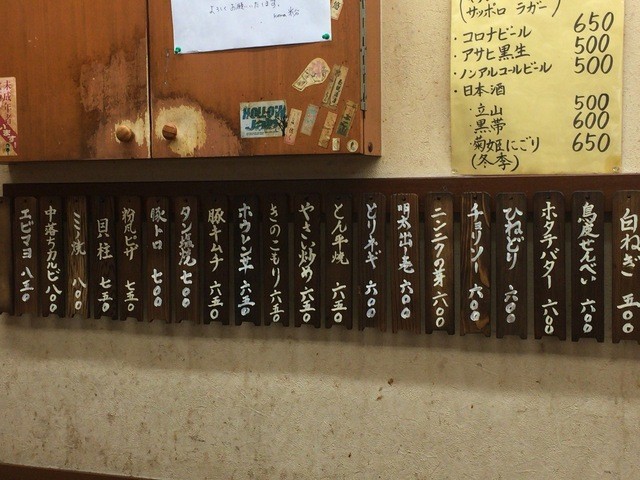 よろしくお願いいたします。
(サッポロ ラガー) 650
・コロナビール 500
・アサヒ黒生 500
・ノンアルコールビール
・日本酒
・立山 500
・黒帯 600
・菊姫にごり 650
(冬季)
白ねぎ 五〇〇
鳥皮せんべい 六〇〇
ホタテバター 六〇〇
ひねどり 六〇〇
チョリソー 六〇〇
ニンニクの芽 六〇〇
明太出し巻 六〇〇
とりネギ 六〇〇
とん平焼 六五〇
やさい炒め 六五〇
きのこもり 六五〇
ホウレン草 六五〇
豚キムチ 六五〇
タン塩焼 七〇〇
豚トロ 七〇〇
粉ピザ 七五〇
貝柱 七五〇
ミノ焼 八〇〇
中落ちカルビ 八〇〇
エビマヨ 八五〇